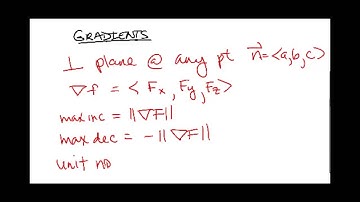 GRADIENTS
⊥ plane @ any pt n⃗=<a,b,c>
∇f = <Fx, Fy, Fz>
max inc = ||∇F||
max dec = -||∇F||
unit no